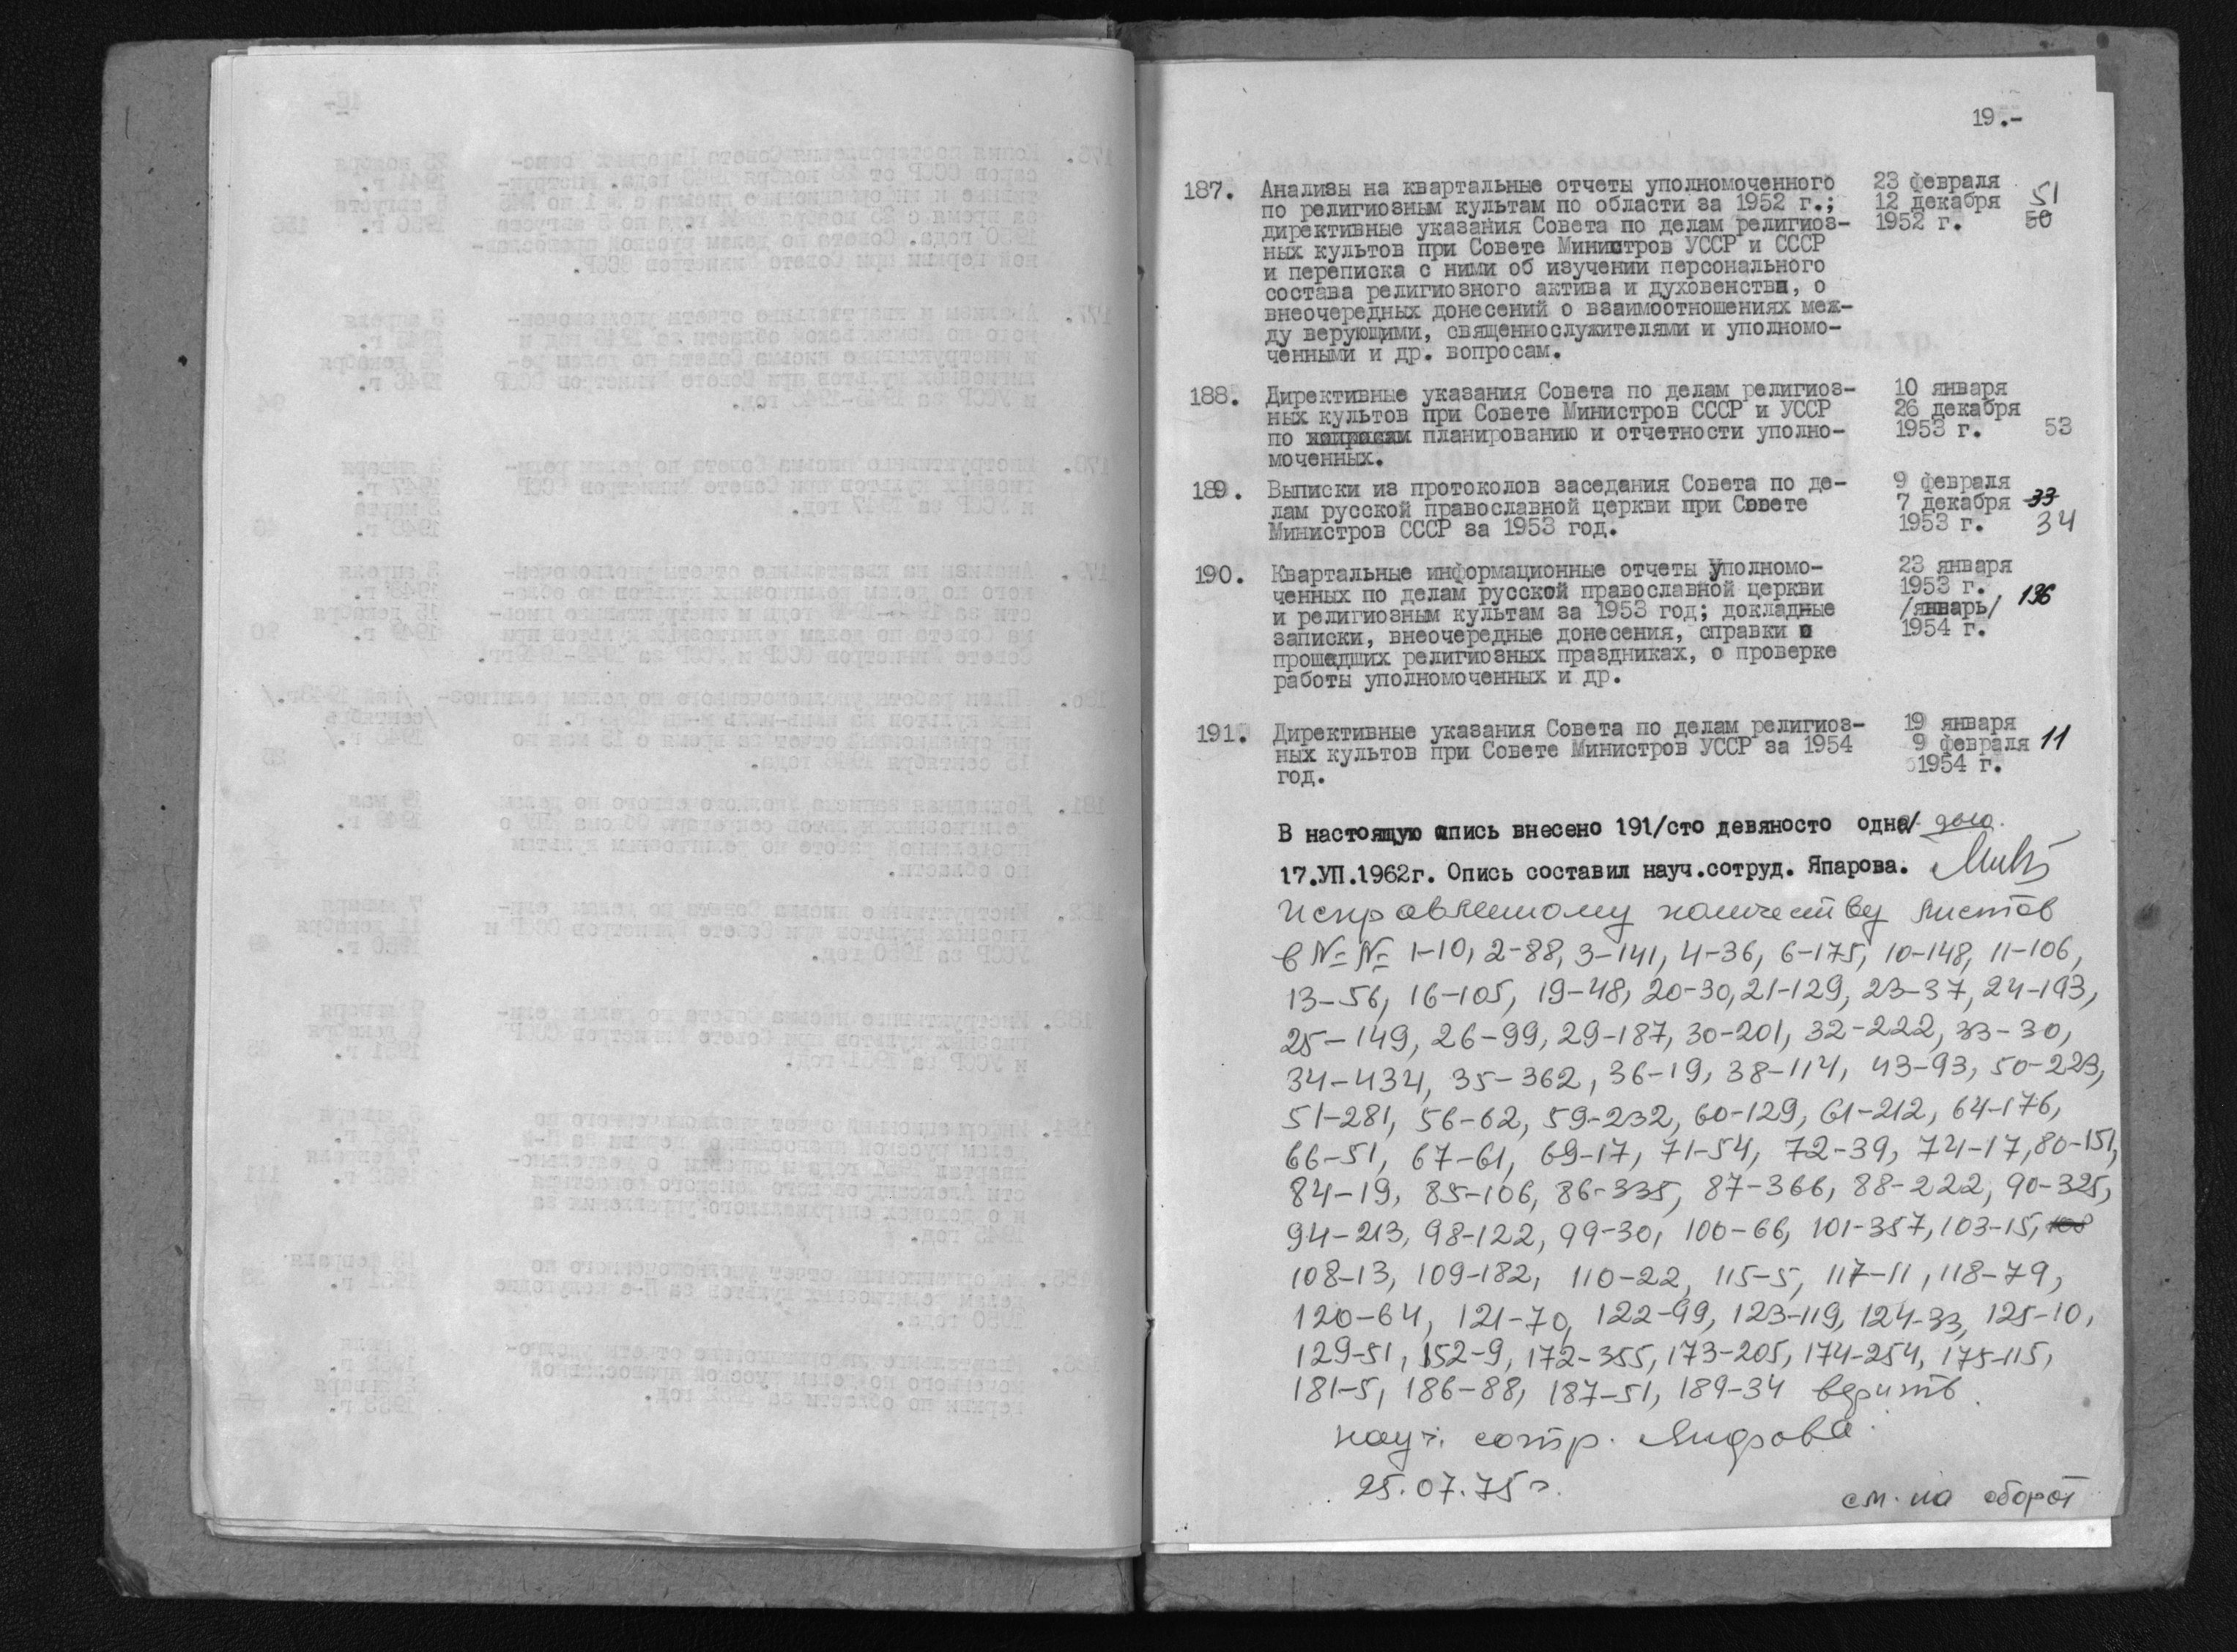 19.-
187. Анализы на квартальные отчеты уполномоченного 23 февраля
по религиозным культам по области за 1952 г.; 12 декабря 51
директивные указания Совета по делам религиоз- 1952 г. 50
ных культов при Совете Министров УССР и СССР
и переписка с ними об изучении персонального
состава религиозного актива и духовенства, о
внеочередных донесений о взаимоотношениях меж-
ду верующими, священнослужителями и уполномо-
ченными и др. вопросам.
188. Директивные указания Совета по делам религиоз- 10 января
ных культов при Совете Министров СССР и УССР 26 декабря
по планированию и отчетности уполно- 1953 г. 53
моченных.
189. Выписки из протоколов заседания Совета по де- 9 февраля
лам русской православной церкви при Совете 7 декабря 33
Министров СССР за 1953 год. 1953 г. 34
190. Квартальные информационные отчеты Уполномо- 23 января
ченных по делам русской православной церкви 1953 г.
и религиозным культам за 1953 год; докладные /январь/ 196
записки, внеочередные донесения, справки о 1954 г.
прошедших религиозных праздниках, о проверке
работы уполномоченных и др.
191. Директивные указания Совета по делам религиоз- 19 января
ных культов при Совете Министров УССР за 1954 9 февраля 11
год. 1954 г.
В настоящую опись внесено 191/сто девяносто одна/ дело.
17.УП.1962г. Опись составил науч.сотруд. Япарова.
Исправленному количеству листов
в №№ 1-10, 2-88, 3-141, 4-36, 6-175, 10-148, 11-106,
13-56, 16-105, 19-48, 20-30, 21-129, 23-37, 24-193,
25-149, 26-99, 29-187, 30-201, 32-222, 33-30,
34-434, 35-362, 36-19, 38-114, 43-93, 50-223,
51-281, 56-62, 59-232, 60-129, 61-212, 64-176,
66-51, 67-61, 69-17, 71-54, 72-39, 74-17, 80-151,
84-19, 85-106, 86-335, 87-366, 88-222, 90-325,
94-213, 98-122, 99-30, 100-66, 101-357, 103-15, 108
108-13, 109-182, 110-22, 115-5, 117-11, 118-79,
120-64, 121-70, 122-99, 123-119, 124-33, 125-10,
129-51, 152-9, 172-355, 173-205, 174-254, 175-115,
181-5, 186-88, 187-51, 189-34 верить.
науч. сотр.
25.07.75 г.
см. на оборот